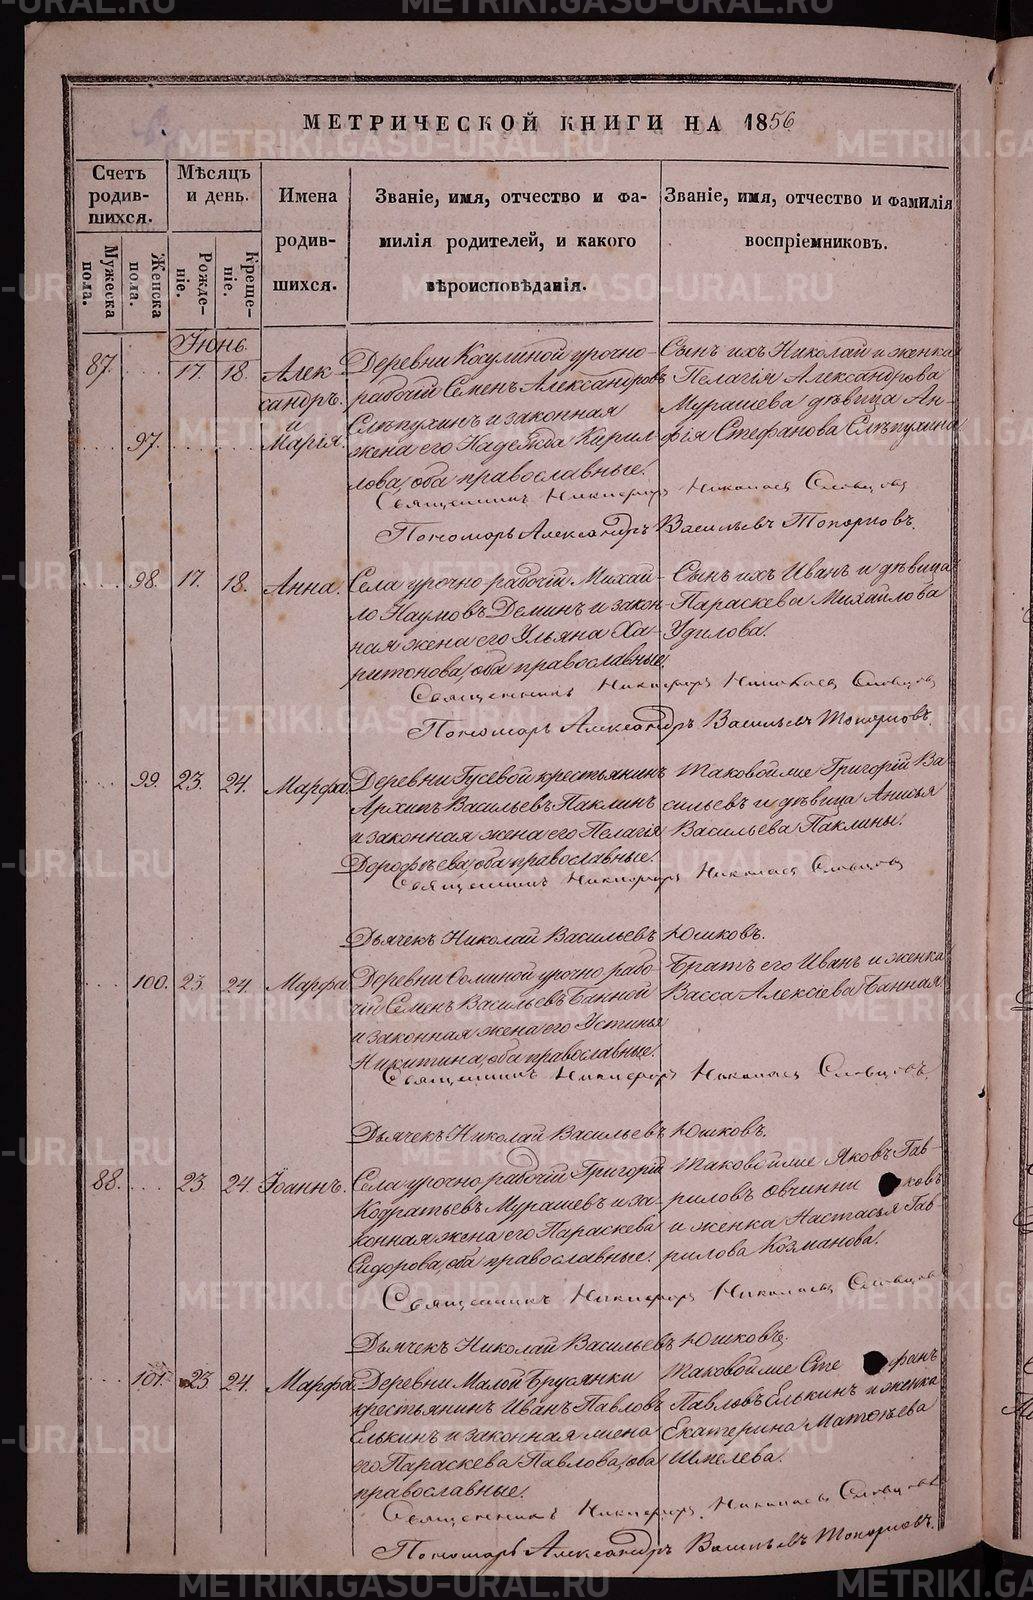 МЕТРИЧЕСКОЙ КНИГИ НА 1856
Счетъ родив-шихся.
Мужеска пола.
Женска пола.
Мѣсяцъ и день.
Рожде-ніе.
Креще-ніе.
Имена родив-шихся.
Званіе, имя, отчество и фа-
милія родителей, и какого
вѣроисповѣданія.
Званіе, имя, отчество и фамилія
воспріемниковъ.
Іюнь
87. 17. 18. Алек Деревни Косулиной урочно- Сынъ ихъ Николай и женка
сандръ. рабочій Семенъ Александровъ Пелагія Александрова
и Слѣпухинъ и законная Мурашева дѣвица Ан-
97. Марія. жена его Надежда Кирил- фія Стефанова Слѣпухина
лова, оба православные.
Священникъ Никифоръ Николаевъ Словцовъ
Пономарь Александръ Васильевъ Топорковъ.
98. 17. 18. Анна. Села урочно-рабочій Михай- Сынъ ихъ Иванъ и дѣвица
ло Наумовъ Деминъ и закон- Параскева Михайлова
ная жена его Ульяна Ха- Удилова.
ритонова, оба православные.
Священникъ Никифоръ Николаевъ Словцовъ
Пономарь Александръ Васильевъ Топорковъ.
99. 23. 24. Марфа. Деревни Гусевой крестьянинъ Таковой же Григорій Ва
Архипъ Васильевъ Паклинъ сильевъ и дѣвица Анисья
и законная жена его Пелагія Васильева Паклины.
Дорофѣева, оба православные.
Священникъ Никифоръ Николаевъ Словцовъ
Дьячекъ Николай Васильевъ Юшковъ.
100. 23. 24. Марфа. Деревни урочно рабо- Братъ его Иванъ и женка
чій Семенъ Васильевъ Банной Васса Алексіева Банная
и законная жена его Устинья
Никитина, оба православные.
Священникъ Никифоръ Николаевъ Словцовъ.
Дьячекъ Николай Васильевъ Юшковъ.
88. 23. 24. Іоаннъ. Села урочно рабочій Григорій Таковой же Яковъ Гав-
Кодратьевъ Мурашевъ и за- риловъ Овчинни ковъ
конная жена его Параскева и женка Настасья Гав-
Сидорова, оба православные. рилова Козманова.
Священникъ Никифоръ Николаевъ Словцовъ
Дьячекъ Николай Васильевъ Юшковъ.
101. 23 24. Марфа. Деревни Малой Брусянки Таковой же Сте фанъ
крестьянинъ Иванъ Павловъ Павловъ Елькинъ и женка
Елькинъ и законная жена Екатерина Матѳѣева
его Параскева Павлова, оба Шмелева.
православные.
Священникъ Никифоръ Николаевъ Словцовъ
Пономарь Александръ Васильевъ Топорковъ.